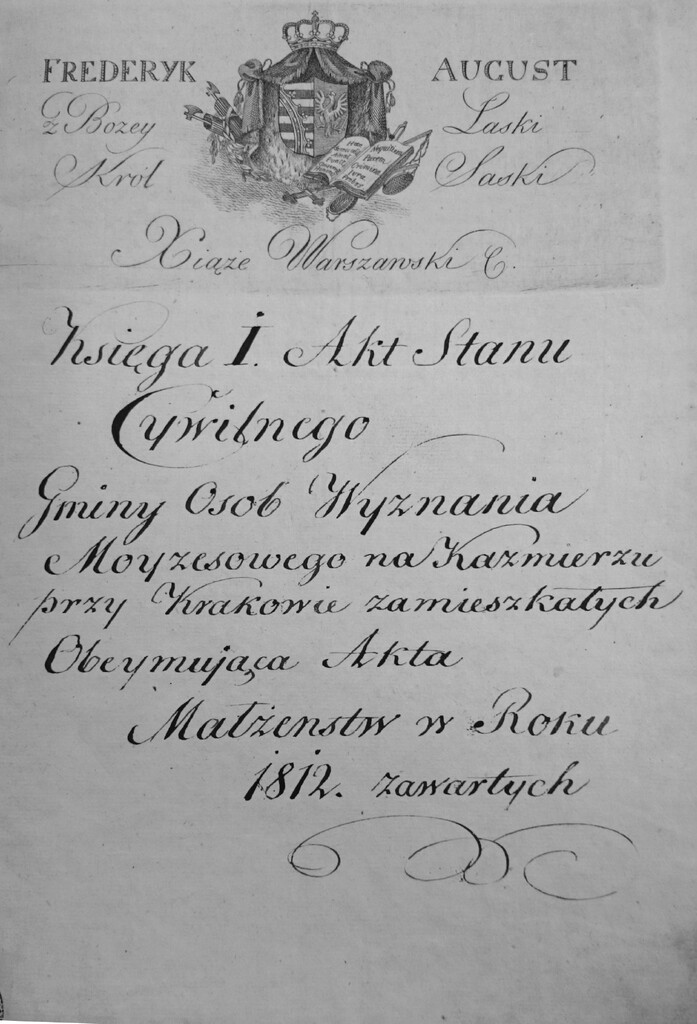 FREDERYK AUGUST
z Bożey Łaski
Król Saski
Xiąże Warszawski &.
Księga I. Akt Stanu
Cywilnego
Gminy Osob Wyznania
Moyzesowego na Kazmierzu
przy Krakowie zamieszkałych
Obeymująca Akta
Małżenstw w Roku
1812. zawartych